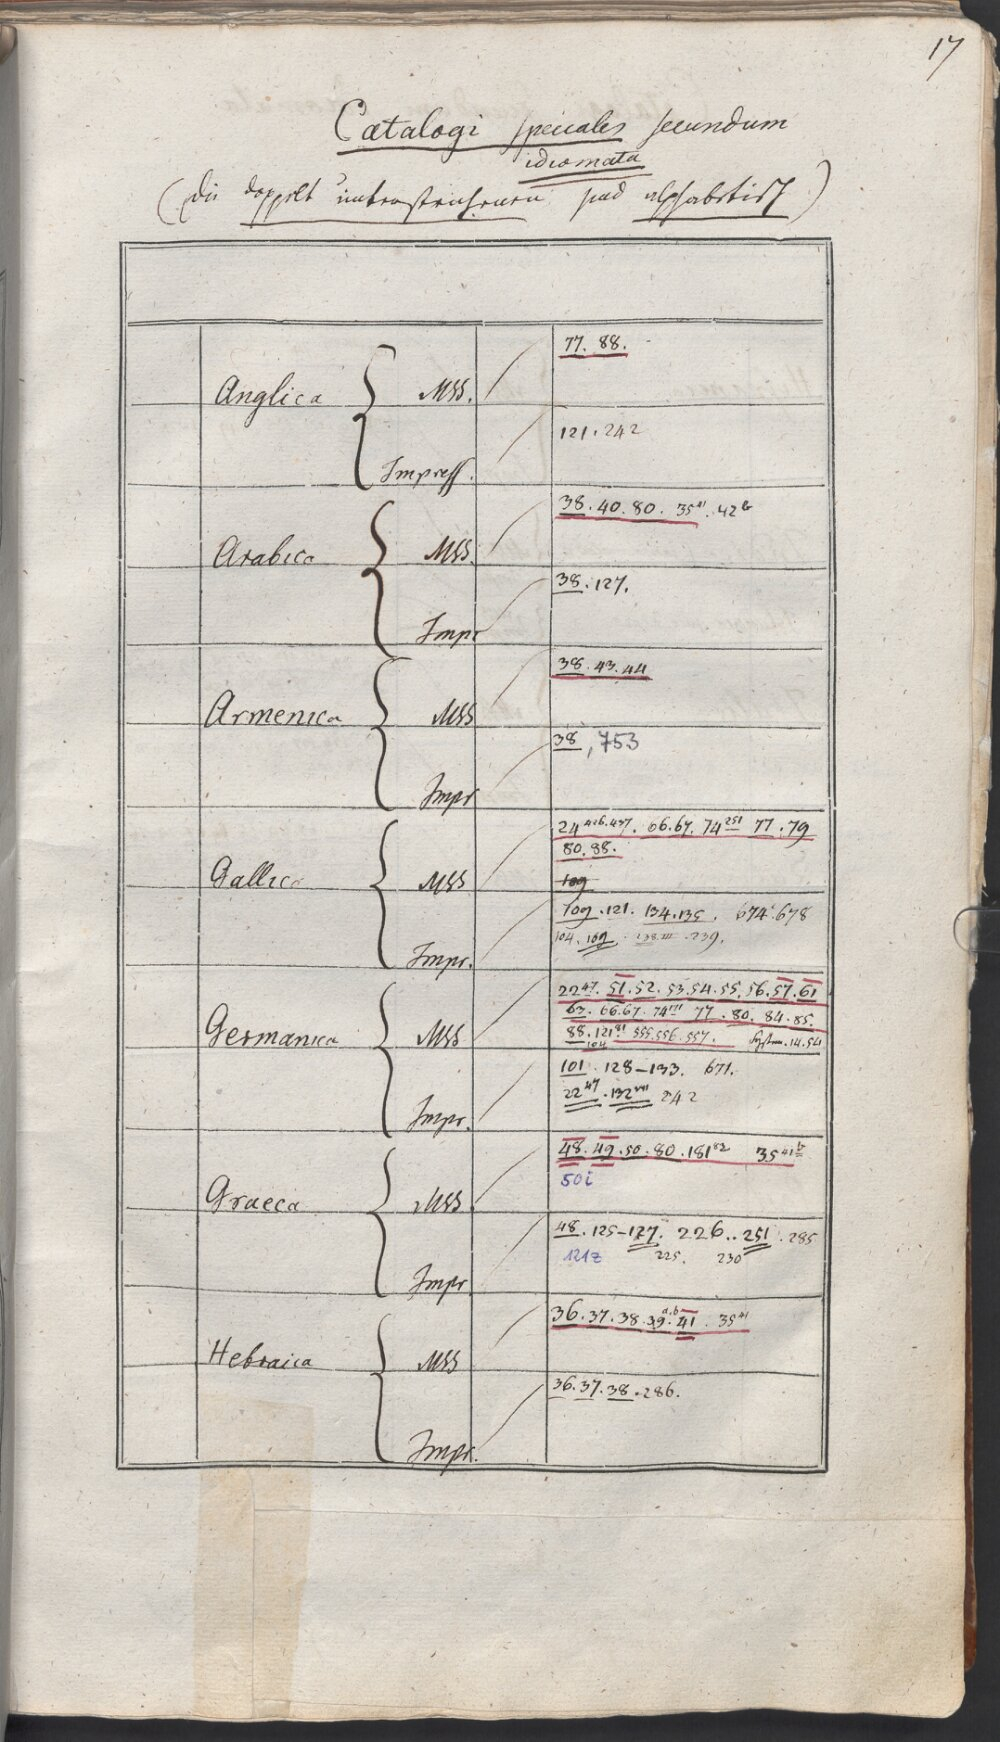 17
Catalogi speciales secundum
idiomata
(die doppelt unterstrichenen sind alphabetisch)
Anglica MSS. 77. 88.
Impress. 121. 242
Arabica MSS. 38. 40. 80. 35⁴¹. 42ᵇ
Impr 38. 127.
Armenica MSS 38. 43. 44
Impr 38, 753
Gallica MSS 24⁴²⁶·⁴³⁷. 66. 67. 74²⁵¹ 77. 79
80. 88.
109
Impr. 109. 121. 134. 135. 674. 678
104. 109. 239.
Germanica MSS 22⁴⁷. 51. 52. 53. 54. 55. 56. 57. 61
63. 66. 67. 77. 80. 84. 85.
88. 121⁸¹ 555. 556. 557. 14. 54
104
Impr. 101. 128–133. 671.
22⁴⁷. 242
Graeca MSS 48. 49. 50. 80. 181⁸² 35⁴¹ᵇ
50i
Impr 48. 125–127. 226.. 251. 285
121z 225. 230
Hebraica MSS 36. 37. 38. 39.ᵃ·ᵇ 41. 35⁴¹
Impr. 36. 37. 38. 286.